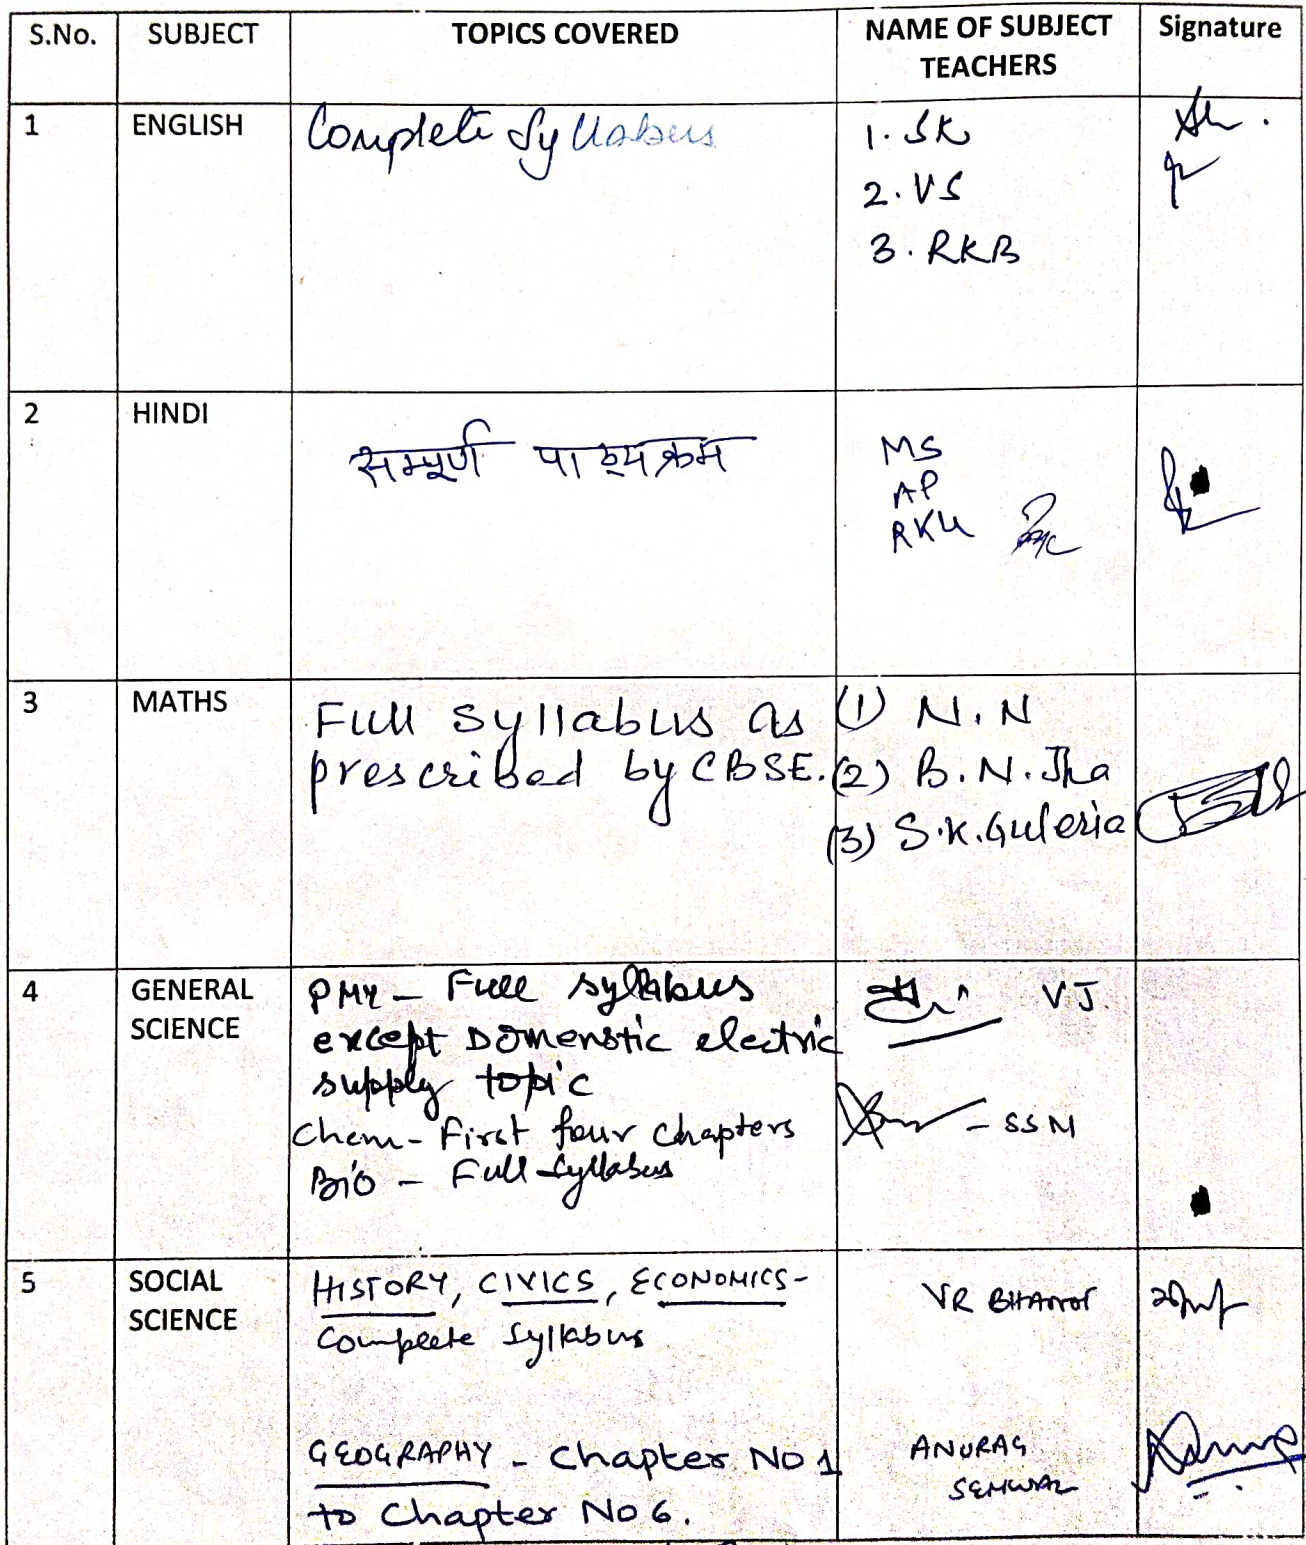 S.No. SUBJECT TOPICS COVERED NAME OF SUBJECT TEACHERS Signature
1 ENGLISH Complete Syllabus
1. SK
2. VS
3. RKB
2 HINDI सम्पूर्ण पाठ्यक्रम
MS
AP
RKU
3 MATHS
Full syllabus as
prescribed by CBSE.
(1) N.N
(2) B.N.Jha
(3) S.K.Guleria
4 GENERAL
SCIENCE
PHY - Full syllabus
except Domenstic electric
supply topic
Chem - First four chapters
Bio - Full Syllabus
VJ.
- SSM
5 SOCIAL
SCIENCE
HISTORY, CIVICS, ECONOMICS-
Complete Syllabus
VR BHANOT
GEOGRAPHY - Chapter No 1
to Chapter No 6.
ANURAG
SEMWAL